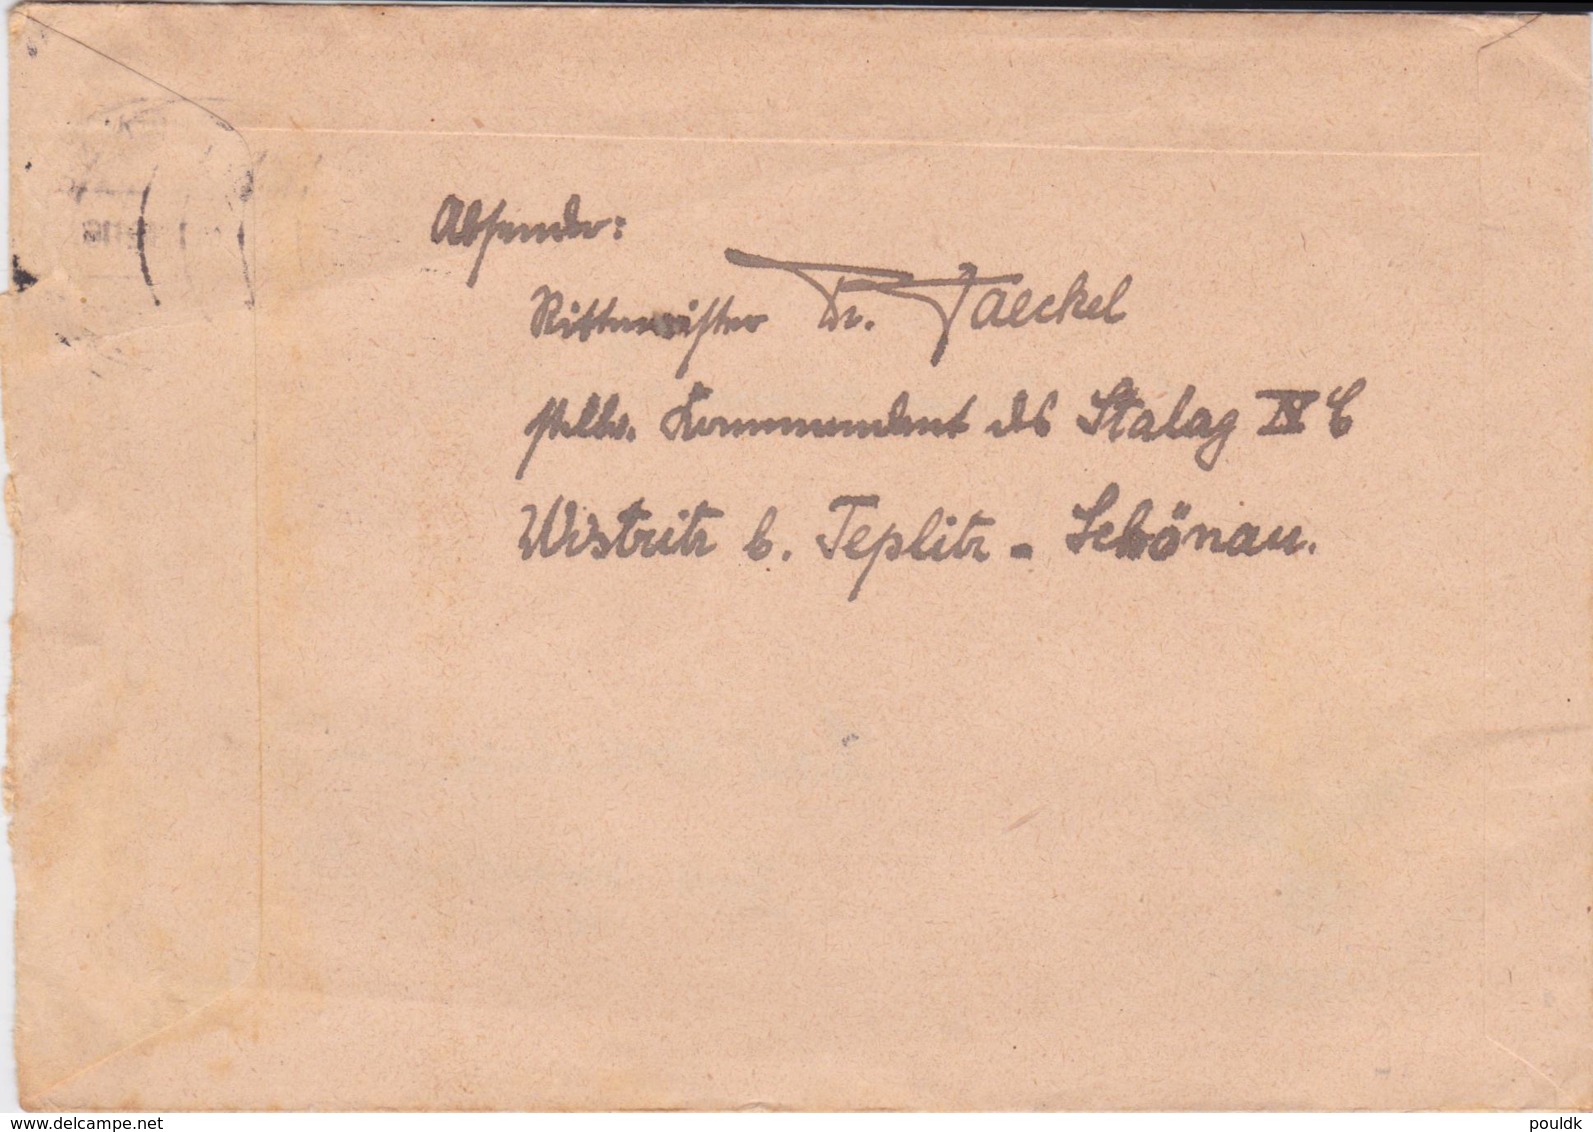 Absender:
Rittmeister Dr. Jaeckel
stellv. Kommandant des Stalag IV C
Wistritz b. Teplitz - Schönau.
www.delcampe.net
pouldk